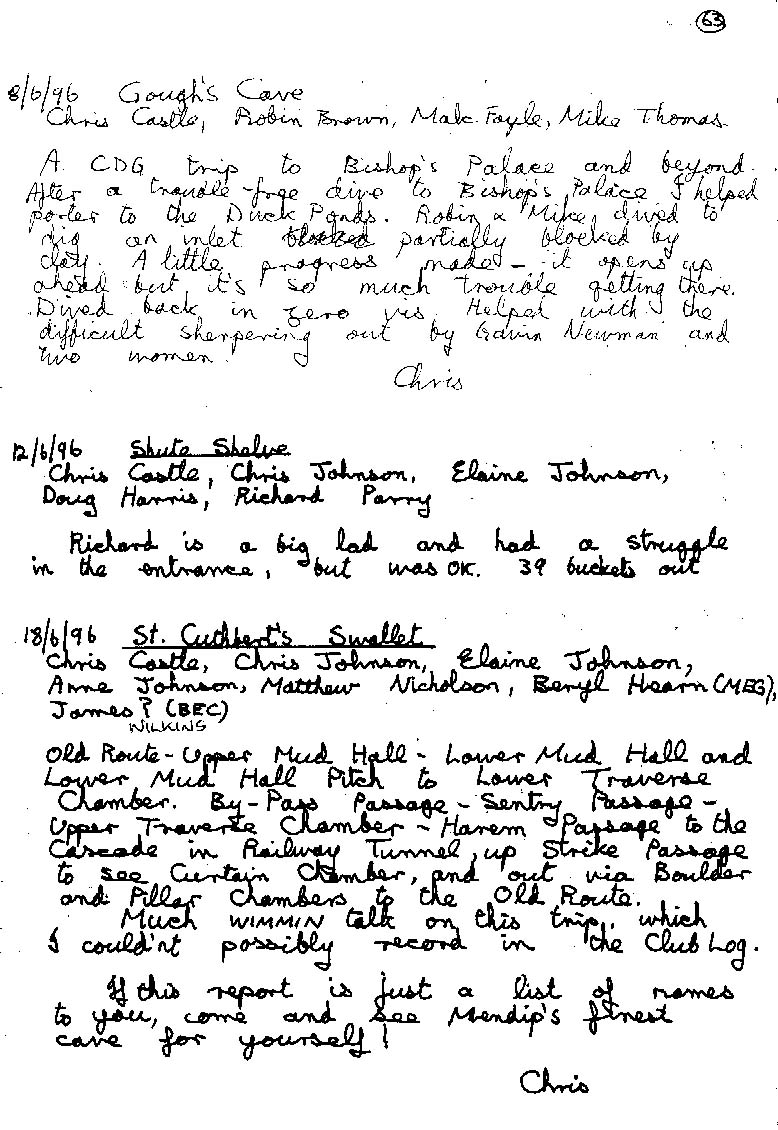 63
8/6/96 Gough's Cave
Chris Castle, Robin Brown, Malc Foyle, Mike Thomas
A CDG trip to Bishop's Palace and beyond.
After a trouble-free dive to Bishop's Palace I helped
porter to the Duck Ponds. Robin & Mike dived to
dig an inlet blocked partially blocked by
clay. A little progress made - it opens up
ahead but it's so much trouble getting there.
Dived back in zero vis. Helped with the
difficult sherpering out by Gavin Newman and
two women.
Chris
12/6/96 Shute Shelve
Chris Castle, Chris Johnson, Elaine Johnson,
Doug Harris, Richard Parry
Richard is a big lad and had a struggle
in the entrance, but was OK. 39 buckets out
18/6/96 St. Cuthbert's Swallet
Chris Castle, Chris Johnson, Elaine Johnson,
Anne Johnson, Matthew Nicholson, Beryl Hearn (MEG),
James? (BEC)
WILKINS
Old Route - Upper Mud Hall - Lower Mud Hall and
Lower Mud Hall Pitch to Lower Traverse
Chamber. By-Pass Passage - Sentry Passage -
Upper Traverse Chamber - Harem Passage to the
Cascade in Railway Tunnel, up Strike Passage
to see Curtain Chamber, and out via Boulder
and Pillar Chambers to the Old Route.
Much WIMMIN talk on this trip, which
I could'nt possibly record in the Club Log.
If this report is just a list of names
to you, come and see Mendip's finest
cave for yourself!
Chris